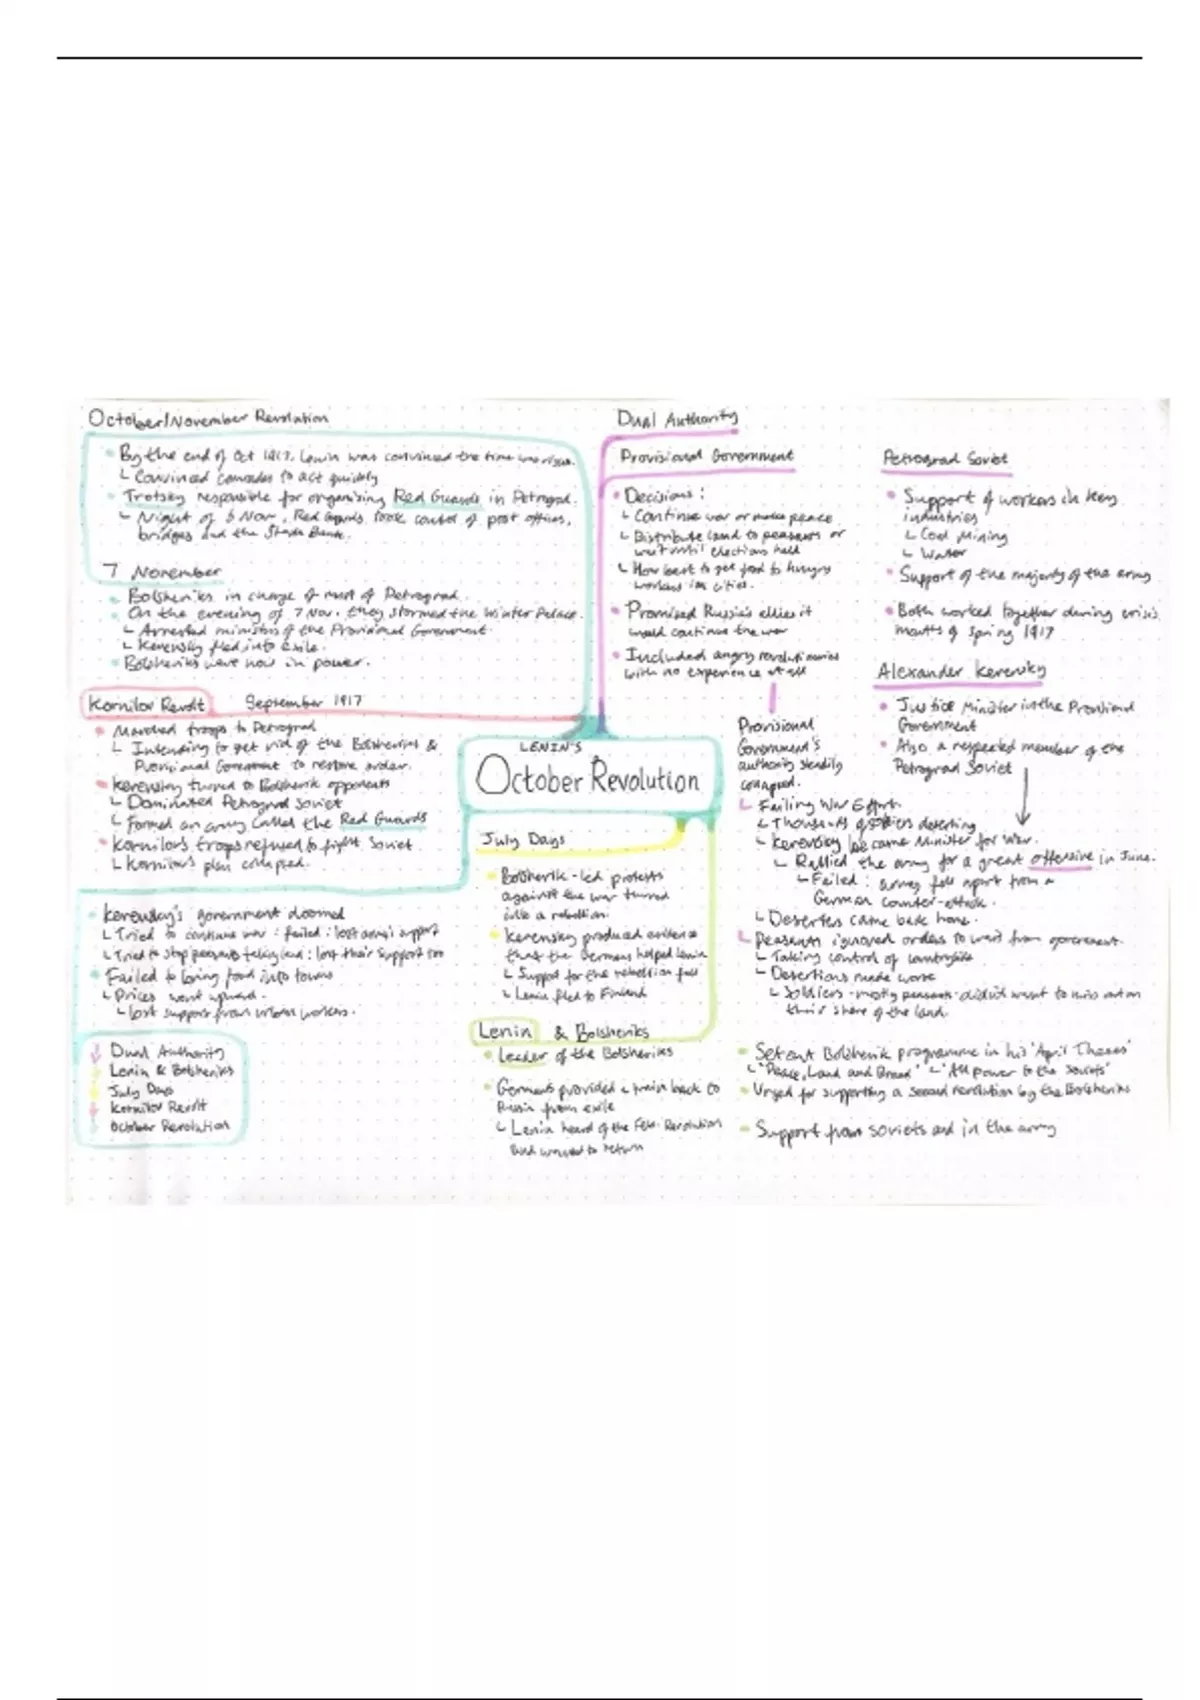 October/November Revolution
By the end of Oct 1917, Lenin was convinced the time was right.
Convinced comrades to act quickly
Trotsky responsible for organising Red Guards in Petrograd.
Night of 6 Nov, Red Guards took control of post offices,
bridges and the State Bank.
7 November
Bolsheviks in charge of most of Petrograd.
On the evening of 7 Nov. they stormed the Winter Palace.
Arrested ministers of the Provisional Government.
Kerensky fled into exile.
Bolsheviks were now in power.
Kornilov Revolt September 1917
Marched troops to Petrograd
Intending to get rid of the Bolsheviks &
Provisional Government to restore order.
Kerensky turned to Bolshevik opponents
Dominated Petrograd Soviet
Formed an army called the Red Guards
Kornilov's troops refused to fight Soviet
Kornilov's plan collapsed.
Kerensky's government doomed
Tried to continue war : failed : lost army support
Tried to stop peasants taking land : lost their support too
Failed to bring food into towns
Prices went upward.
Lost support from urban workers.
Dual Authority
Lenin & Bolsheviks
July Days
Kornilov Revolt
October Revolution
LENIN'S
October Revolution
July Days
Bolshevik-led protests
against the war turned
into a rebellion.
Kerensky produced evidence
that the Germans helped Lenin
Support for the rebellion fell
Lenin fled to Finland
Lenin & Bolsheviks
Leader of the Bolsheviks
Germans provided a train back to
Russia from exile
Lenin heard of the Feb. Revolution
and wanted to return
Dual Authority
Provisional Government
Decisions :
Continue war or make peace
Distribute land to peasants or
wait until elections held
How best to get food to hungry
workers in cities.
Promised Russia's allies it
would continue the war
Included angry revolutionaries
with no experience at all
Provisional
Government's
authority steadily
collapsed.
Failing War Effort.
Thousands of soldiers deserting
Kerensky became Minister for War.
Rallied the army for a great offensive in June.
Failed : army fell apart from a
German counter-attack.
Deserters came back home.
Peasants ignored orders to wait from government.
Taking control of countryside
Desertions made worse
Soldiers - mostly peasants - didn't want to miss out on
their share of the land.
Set out Bolshevik programme in his 'April Theses'
"Peace, Land and Bread" 'All power to the soviets'
Urged for supporting a second revolution by the Bolsheviks
Support from soviets and in the army
Petrograd Soviet
Support of workers in key
industries
Coal Mining
Water
Support of the majority of the army
Both worked together during crisis
months of Spring 1917
Alexander Kerensky
Justice Minister in the Provisional
Government
Also a respected member of the
Petrograd Soviet